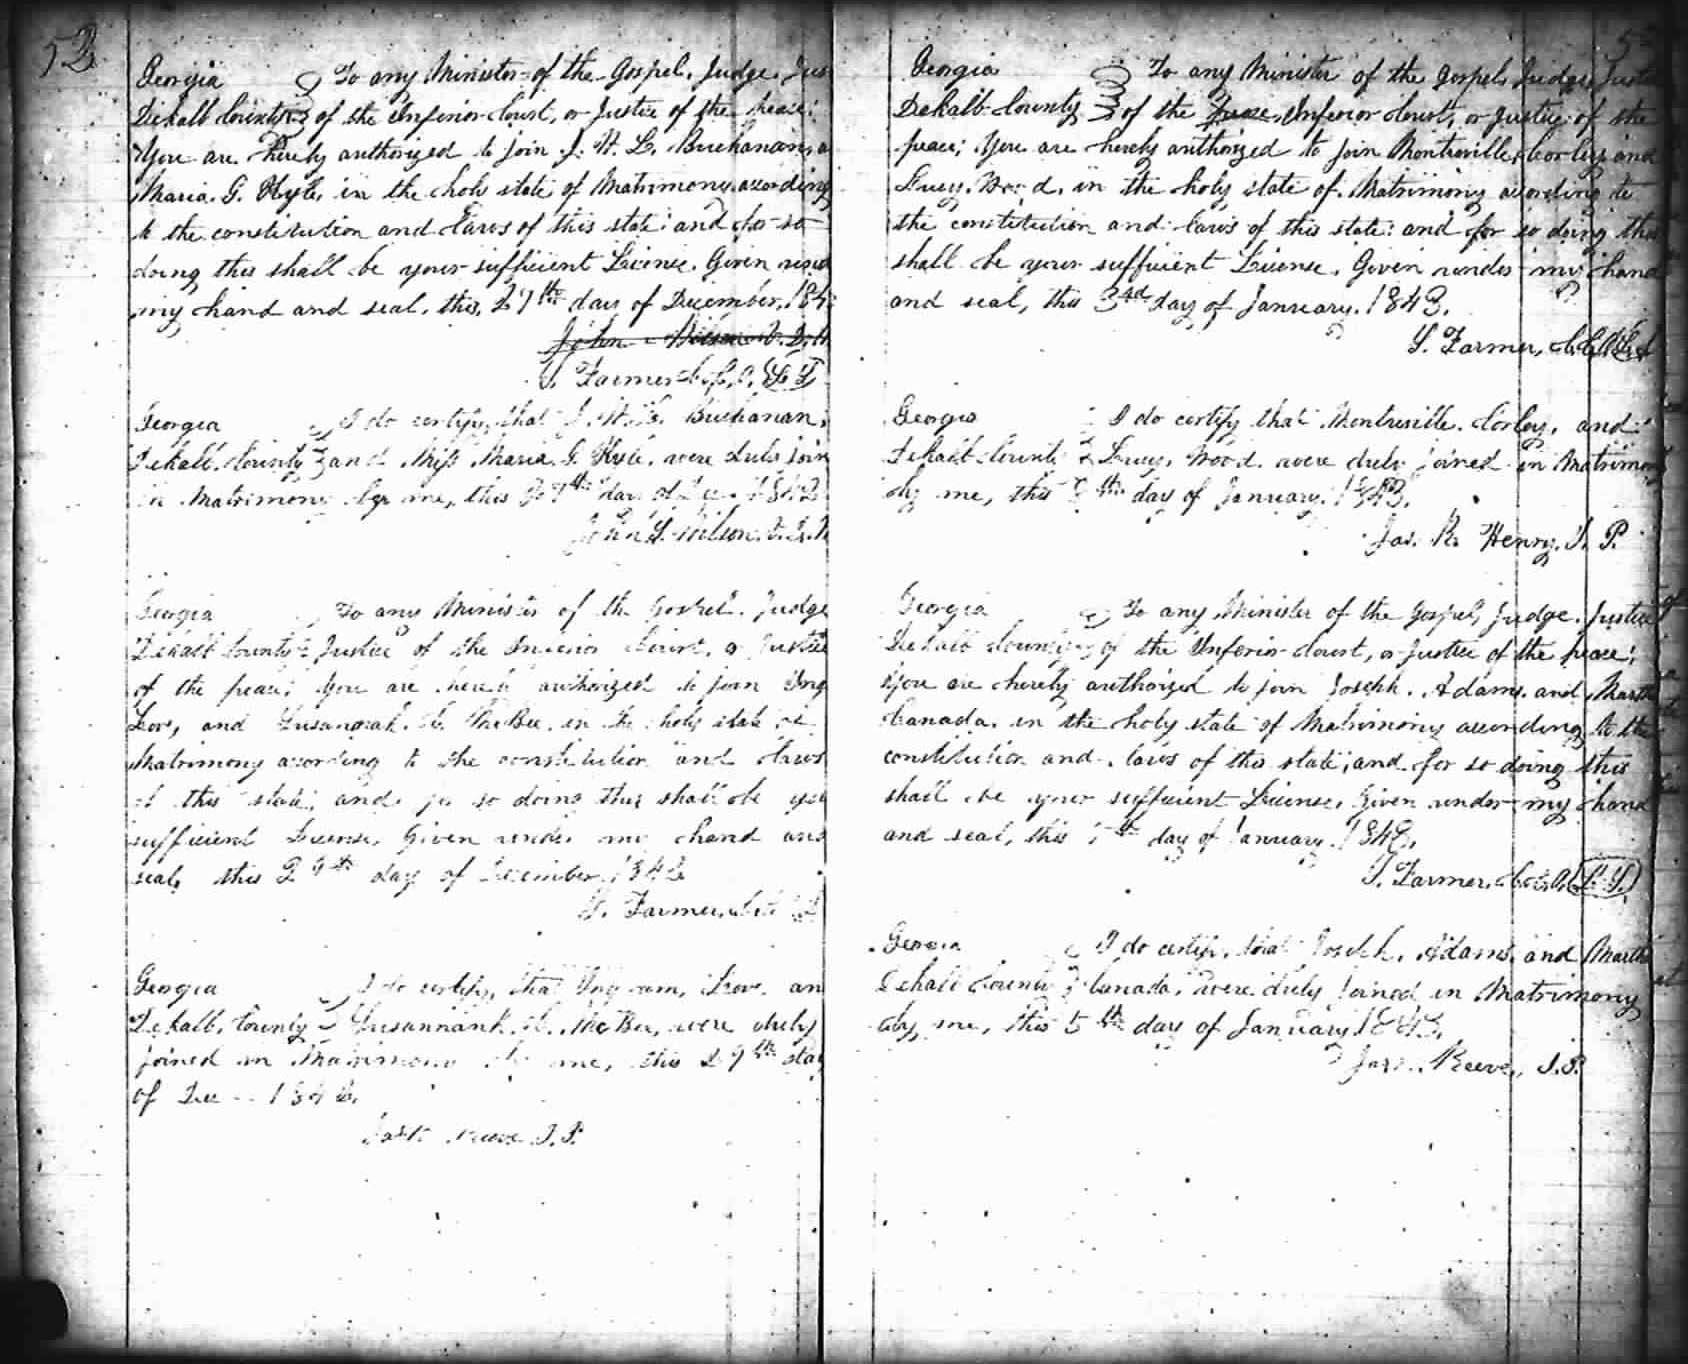 52
Georgia To any Minister of the Gospel, Judge, Jus
DeKalb County of the Inferior Court, or Justice of the peace;
You are hereby authorized to join J. W. L. Buchanan, a
Maria. G. Kyle, in the holy state of Matrimony according
to the constitution and Laws of this state: and for so
doing this shall be your sufficient License. Given und
my hand and seal, this, 27th day of December, 184
John Wilson
Farmer C.C.O. L S
Georgia I do certify, that J. W. L. Buchanan,
Dekalb. County and Miss Maria. G. Kyle. were duly join
in Matrimony by me, this 27th day of Dec. 1842
John S. Wilson.
Georgia To any Minister of the Gospel. Judge
DeKalb County Justice of the Inferior Court, or Justice
of the peace; You are hereby authorized to join Ing
Love, and Susannah. McBee. in the holy state of
Matrimony according to the constitution and Laws
of this state; and for so doing this shall be you
sufficient License. Given under my hand and
seal, this 29th day of December. 1842
Farmer,
Georgia I do certify, that Ingram, Love. an
Dekalb, County Susannank McBee, were duly
joined in Matrimony by me, this 29th day
of Dec 1842.
Reeve J. P.
Georgia To any Minister of the Gospel, Judge, Just
Dekalb County of the Inferior Court, or Justice of the
peace; You are hereby authorized to join Montreville, Corley, and
Lucy. Wood. in the holy state of Matrimony according to
the constitution and laws of this state: and for so doing this
shall be your sufficient License. Given under my hand
and seal, this 3rd day of January. 1843.
Farmer,
Georgia I do certify that Montreville. Corley, and
Dekalb County Lucy. Wood. were duly joined in Matrimony
by me, this th day of January. 1843.
Jas. R. Henry, J. P.
Georgia To any Minister of the Gospel, Judge. Justice
DeKalb County of the Inferior Court, or Justice of the peace;
You are hereby authorized to join Joseph. Adams. and Marth
Canada. in the holy state of Matrimony according to the
constitution and laws of this state; and for so doing this
shall be your sufficient License. Given under my hand
and seal, this th day of January. 1843.
Farmer, C.C.O. L. S.
Georgia I do certify, that Joseph. Adams, and Marth
Dekalb County Canada, were duly joined in Matrimony
by me, this 5th day of January 1843.
Jas. Reeve, J.P.